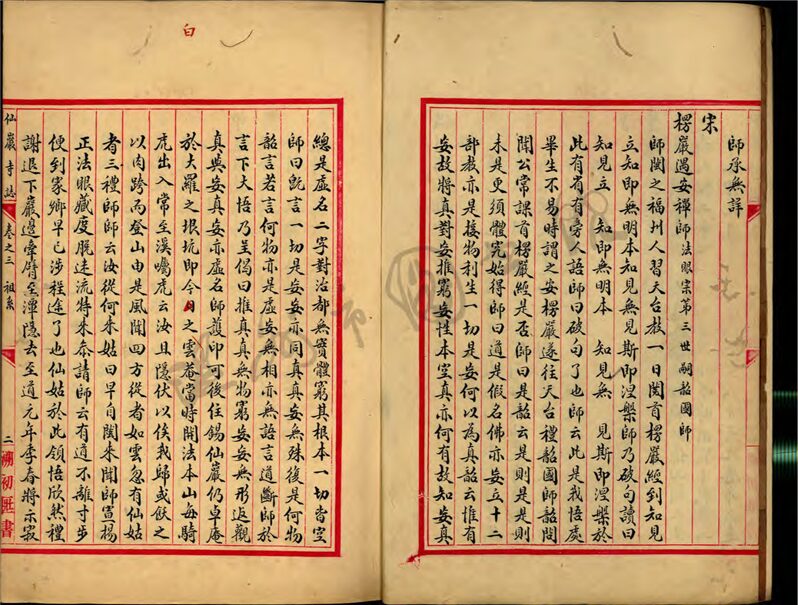 師承無詳
宋
楞嚴遇安禪師法眼宗第三世嗣韶國師
師閩之福州人習天台教一日閱首楞嚴經到知見
立知即無明本知見無見斯即涅槃師乃破句讀曰
知見立　知即無明本　知見無　見斯即涅槃於
此有省有旁人語師曰破句了也師云此是我悟處
畢生不易時謂之安楞嚴遂往天台禮韶國師韶問
聞公常課首楞嚴經是否師曰是韶云是則是是則
未是更須體究始得師曰道是假名佛亦妄立十二
部教亦是接物利生一切是妄何以為真韶云惟有
妄故將真對妄推窮妄性本空真亦何有故知妄真
總是虛名二字對治都無實體窮其根本一切皆空
師曰旣言一切是妄妄亦同真真妄無殊復是何物
韶言若言何物亦是虛妄無相亦無語言道斷師於
言下大悟乃呈偈曰推真真無物窮妄妄無形返觀
真與妄真妄亦虛名師護印可後住錫仙巖仍卓庵
於大羅之垠坑即今日之雲菴當時開法本山每騎
虎出入常至溪囑虎云汝且隱伏以俟我歸或飲之
以肉跨而登山由是風聞四方從者如雲忽有仙姑
者三禮師師云汝從何來姑曰早自閩來聞師當揚
正法眼藏度脫迷流特來叅請師云有道不離寸步
便到家鄉早已涉程途了也仙姑於此領悟欣然禮
謝退下巖邊牽臂至潭隱去至道元年季春將示寂
仙巖寺誌　卷之三　祖系　二
溯初匨書
白